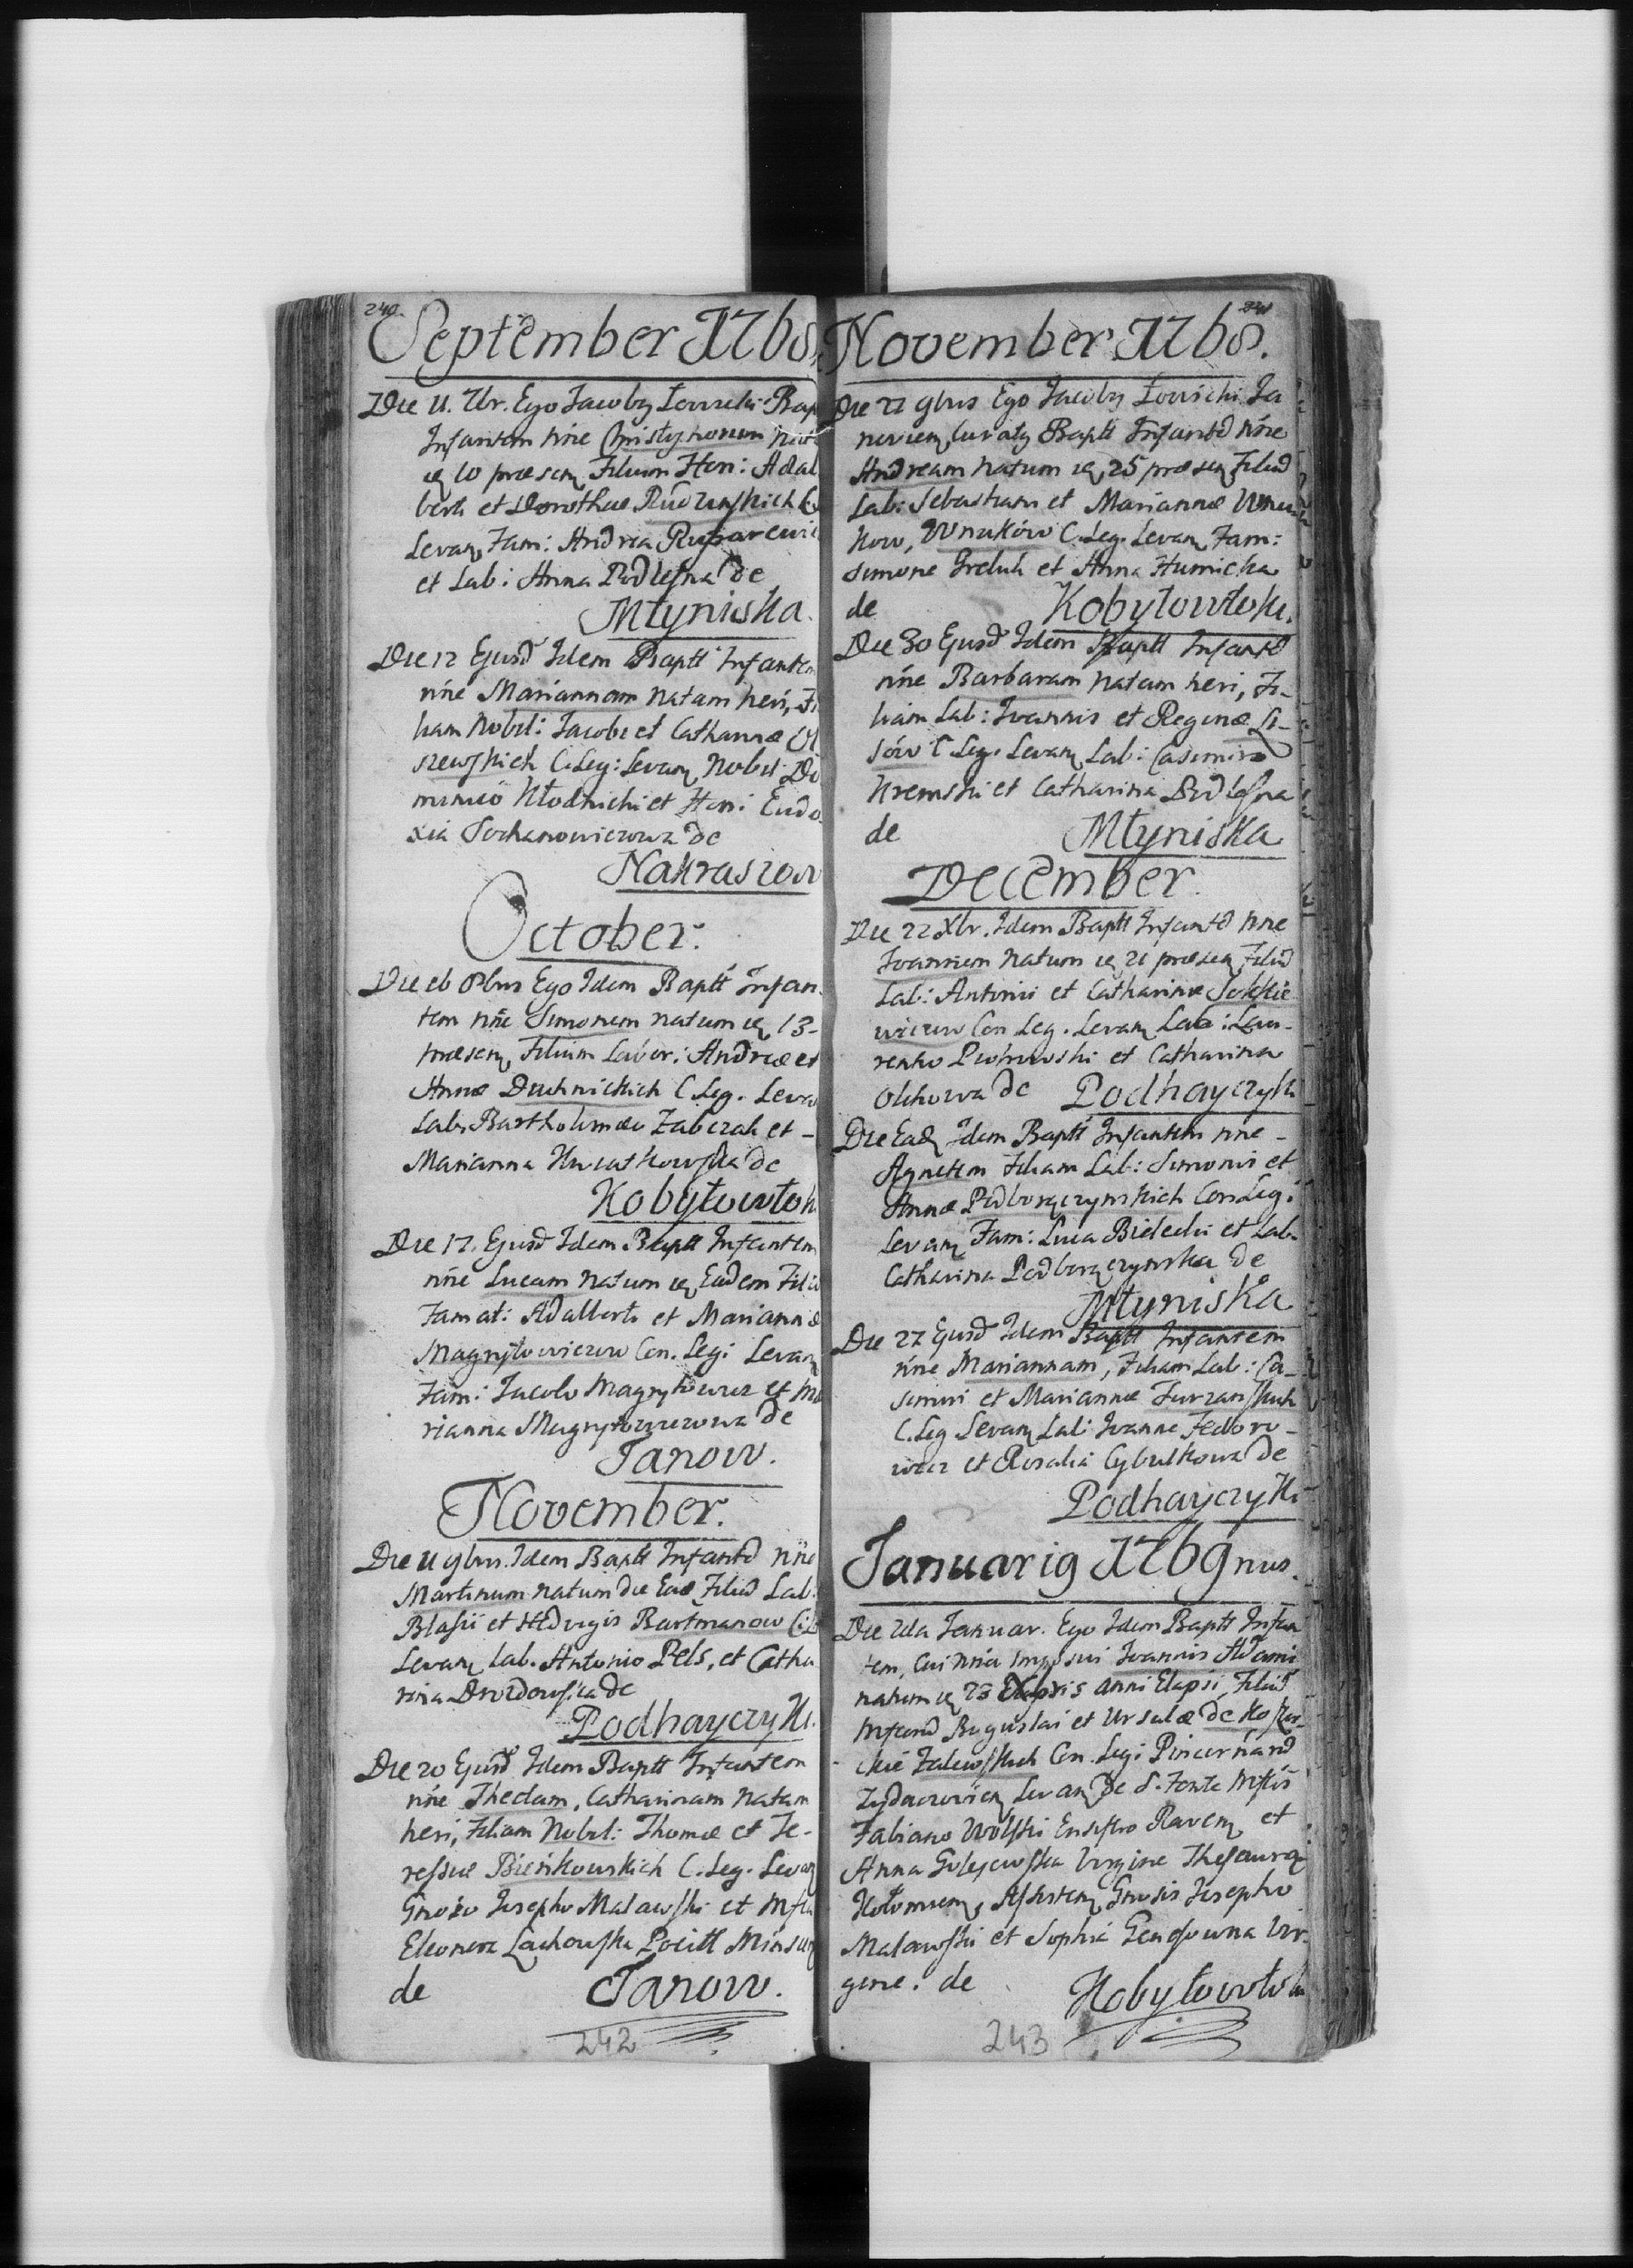 240.
September 1768.
Die 11. 7br. Ego Jacobg Łowicki Bap
Infantem nne Christophorum nat
10 praesen Filium Hon: Adal
berti et Dorotheae
Levan Fam: Andrea
et Lab: Anna Podlesna de
Młyniska.
Die 12 Ejusd Idem Baptt Infantem
nne Mariannam natam heri, Fi
liam Nobil: Jacobi et Catharinae Ol
szewskich C. Leg: Levan Nobil: Do
minico Kłodnicki et Hon: Eudo
xia Sochanowiczowa de
Nakraszow
October.
Die 16 8bris Ego Idem Baptt Infan
tem nne Simonem natum 13-
praesen Filium Labor: Andreae et
Annae Duchnickich C. Leg. Leva
Lab. Bartholomaeo Zabczak et -
Marianna Kwiatkowska de
Kobyłowłok
Die 17. Ejusd Idem Baptt Infantem
nne Lucam natum Eadem Filiu
Famat: Adalberti et Mariannae
Magryłowiczow Con. Legi Levan
Fam: Jacobo Magryłowicz et Ma
rianna Magryłowiczowa de
Janow.
November.
Die 11 9bris. Idem Baptt Infantd nne
Martinum natum die Ead Filiu Lab:
Blasii et Hedvigis Bartmanow
Levan Lab. Antonio Pels, et Catha
rina Drozdowska de
Podhayczyki.
Die 20 Ejusd Idem Baptt Infantem
nne Theclam, Catharinam natam
heri, Filiam Nobil: Thomae et Te-
ressiae Bieńkowskich C. Leg. Levan
Gnoso Josepho Malawski et
Eleonora Lachowska
de Janow.
242
241
November 1768.
Die 27 9bris Ego Jacobg Łowicki Ja
novien Curatg Baptt Infantd nne
Andream natum 25 praesen Filiud
Lab: Sebastiani et Mariannae
kow, Wnuków C. Leg. Levan Fam:
Simone Greluk et Anna Humicka
de Kobyłowłoki.
Die 30 Ejusd Idem Baptt Infantd
nne Barbaram natam heri, Fi-
liam Lab: Joannis et Reginae Li-
sów C. Leg. Levan Lab: Casimiro
Kremski et Catharina Podlesna
de Młyniska
December.
Die 22 Xbr. Idem Baptt Infantd nne
Joannem natum 21 praesen Filiud
Lab: Antonii et Catharinae Sokkie
wiczow Con Leg. Levan Lab: Lau-
rentio Piotrowski et Catharina
Olchowa de Podhayczyki
Die Ead Idem Baptt Infantem nne -
Agnetem Filiam Lab: Simonis et
Annae Podborączynskich Con Leg:
Levan Fam: Luca Bielecki et Lab.
Catharina Podborączynska de
Młyniska
Die 27 Ejusd Idem Baptt Infantem
nne Mariannam, Filiam Lab: Ca-
simiri et Mariannae Furzanskich
C. Leg Levan Lab: Joanne Fedoro-
wicz et Rosalia Cybulkowa de
Podhayczyki
Januarig 1769nus.
Die 2da Januar. Ego Idem Baptt Infan
tem, cui nna imposui Joannis Adami
natum 23 Xbris anni Elapsi, Filiud
Boguslai et Ursulae de
Zalewskich Con. Legi Pincernard
Levan de S. Fonte
Fabiano Wolski Ensifero Raven et
Anna Golejewska Virgine
Assisten Gnosis Josepho
Malawski et Sophia Vir-
gine. de Kobyłowłoki
243